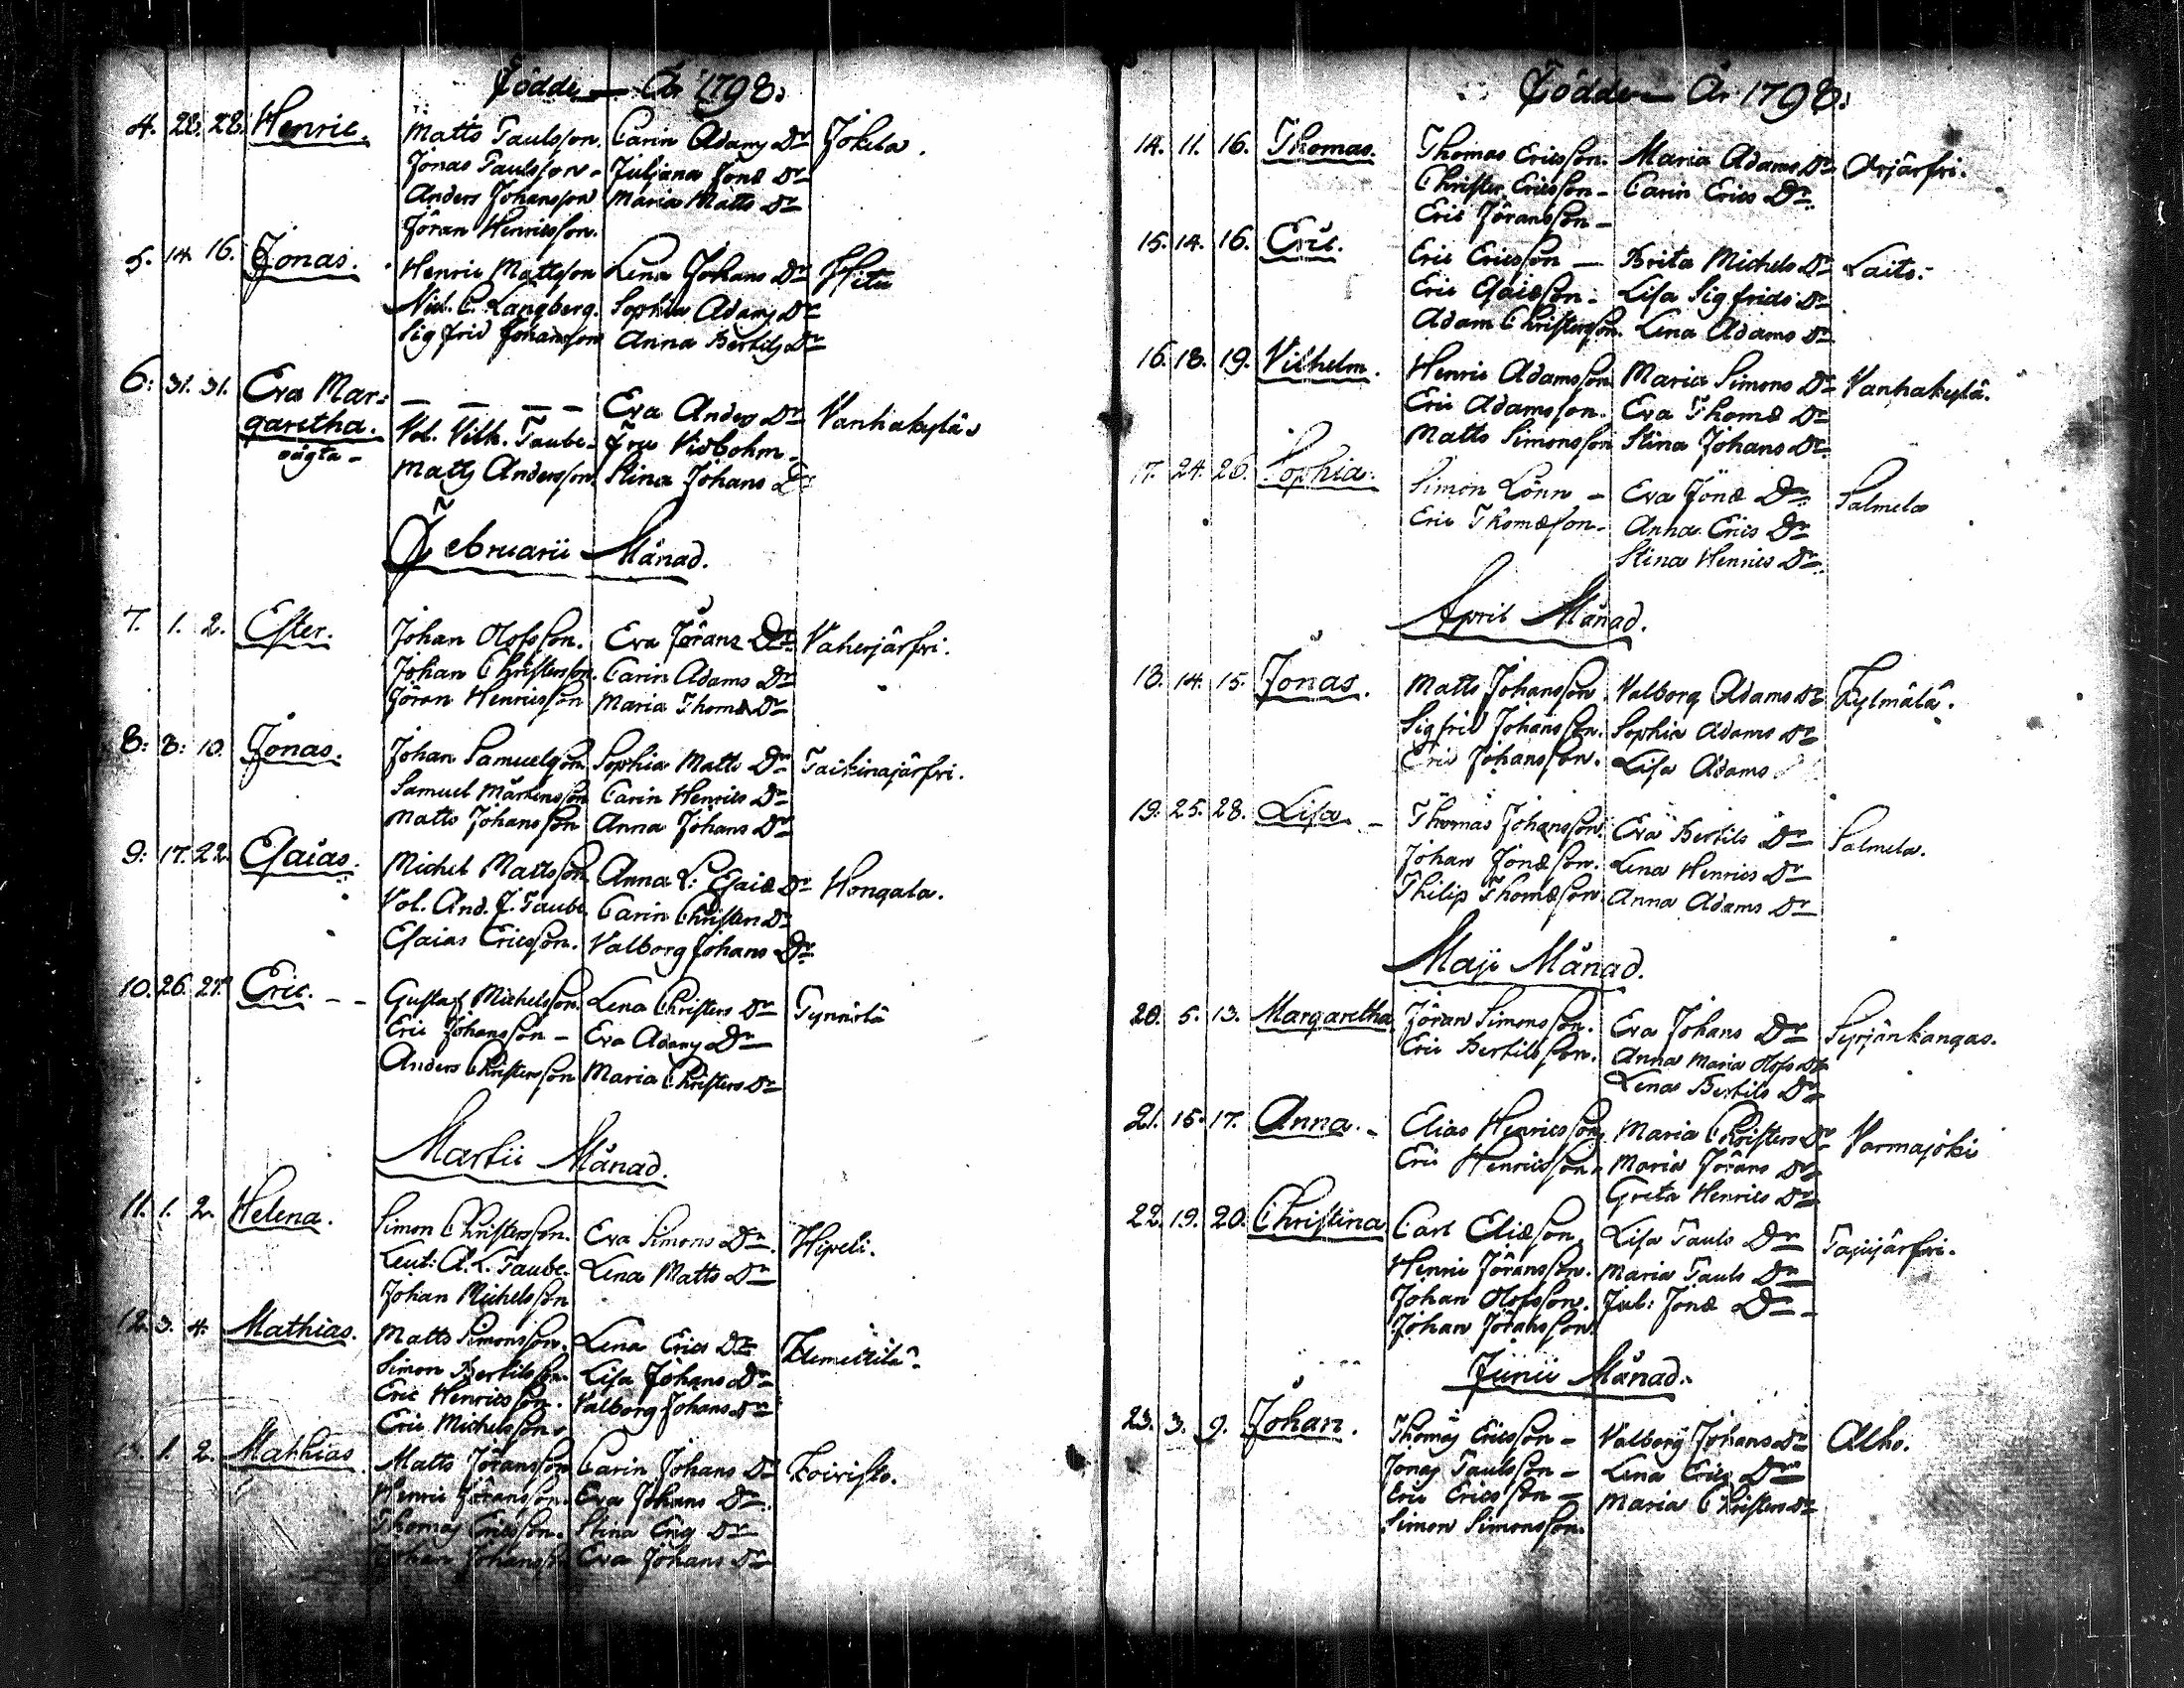 Födde År 1798.
4. 22. 28. Henric. Matts Paulsson. Carin Adams Dr Jokela.
Jonas Paulsson - Juliana Jonæ Dr
Anders Johansson Maria Matts Dr
Jöran Henricsson.
5. 14. 16. Jonas. Henric Mattsson Lena Johans Dr
Nid. C. Langberg. Sophia Adams Dr
Sigfrid Johansson Anna Bertils Dr
6: 31. 31. Eva Mar= — — — — Eva Anders Dr Vanhakylä
garetha. Vol. Vilh. Taube - Fru Vidbohm -
oägta - Matts Andersson Stina Johans Dr
Februarii Månad.
7. 1. 2. Ester. Johan Olofsson. Eva Jörans Dr Vaherjärfvi.
Johan Christersson. Carin Adams Dr
Jöran Henricsson Maria Thomæ Dr
8: 8: 10. Jonas. Johan Samuelsson Sophia Matts Dr Paikinajärfvi.
Samuel Mårtensson Carin Henrics Dr
Matts Johansson Anna Johans Dr
9: 17. 22. Esaias. Michel Mattsson Anna L: Esaiæ Dr Hongala.
Vol. And. J. Taube Carin Christers Dr
Esaias Ericsson. Valborg Johans Dr
10. 26. 27. Eric. - - Gustaf Michelsson. Lena Christers Dr Pynnölä
Eric Johansson - Eva Adams Dr
Anders Christersson Maria Christers Dr
Martii Månad.
11. 1. 2. Helena. Simon Christersson. Eva Simons Dr Hipeli.
Leut: A. L. Taube. Lena Matts Dr
Johan Michelsson
12. 3. 4. Mathias. Matts Simonsson. Lena Erics Dr Klemettilä.
Simon Bertilsson. Lisa Johans Dr
Eric Henricsson. Valborg Johans Dr
Eric Michelsson.
13. 1. 2. Mathias Matts Jöransson Carin Johans Dr Koivisto.
Henric Jöransson. Eva Johans Dr
Thomas Ericsson. Stina Erics Dr
Johan Johansson Eva Johans Dr
Födde År 1798.
14. 11. 16. Thomas. Thomas Ericsson. Maria Adams Dr Orjärfvi.
Christer Ericsson - Carin Erics Dr
Eric Jöransson -
15. 14. 16. Eric. Eric Ericsson - Brita Michels Dr Laits.
Eric Esaiæson - Lisa Sigfrids Dr
Adam Christersson. Lena Adams Dr
16. 18. 19. Vilhelm. Henric Adamsson Maria Simons Dr Vanhakylä.
Eric Adamsson. Eva Thomæ Dr
Matts Simonsson Stina Johans Dr
17. 24. 26. Sophia. Simon Lönn - Eva Jonæ Dr Salmela
Eric Thomæson - Anna Erics Dr
Stina Henrics Dr
April Månad.
18. 14. 15. Jonas. Matts Johansson. Valborg Adams Dr Kylmälä.
Sigfrid Johansson. Sophia Adams Dr
Eric Johansson. Lisa Adams
19. 25. 28. Lisa. - Thomas Johansson. Eva Bertils Dr Salmela.
Johan Jonæson. Lena Henrics Dr
Philip Thomæson. Anna Adams Dr
Maji Månad.
20. 5. 13. Margaretha Jöran Simonsson. Eva Johans Dr Syrjänkangas.
Eric Bertilsson. Anna Maria Olofs Dr
Lena Bertils Dr
21. 15. 17. Anna. - Elias Henricsson Maria Christers Dr Varmajoki
Eric Henricsson. Maria Jörans Dr
Greta Henrics Dr
22. 19. 20. Christina Carl Eliæson. Lisa Pauls Dr Pajujärfvi.
Henric Jöransson. Maria Pauls Dr
Johan Olofsson. Jul: Jonæ Dr -
Johan Jöransson.
Junii Månad.
23. 3. 9. Johan. Thomas Ericsson - Valborg Johans Dr Alho.
Jonas Paulsson - Lena Erics Dr
Eric Ericsson - Maria Christers Dr
Simon Simonsson.